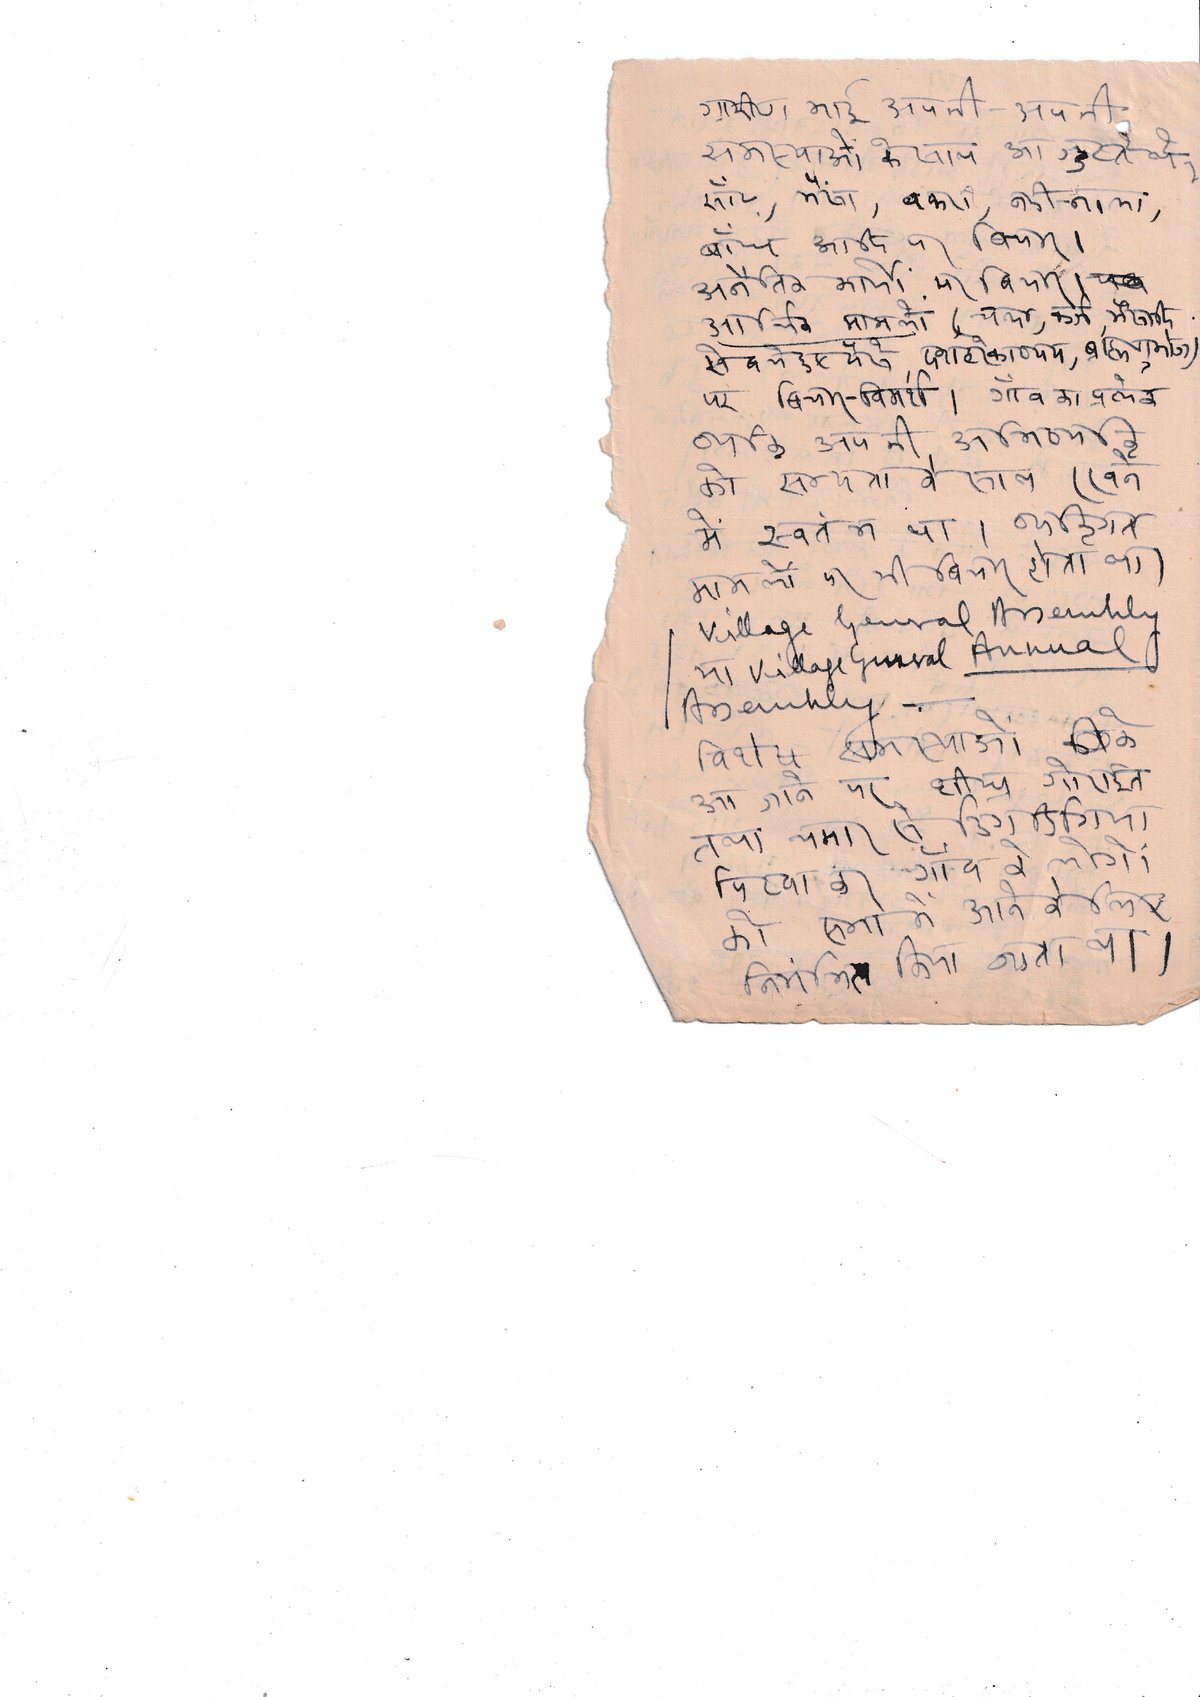 ग्रामीण भाई अपनी-अपनी
समस्याओं के साथ आ जुटते थे।
साँढ़, भैंसा, बकरा, नदी-नाला,
बाँध आदि पर विचार।
अनैतिक कार्यों पर विचार।
आर्थिक मामलों (चन्दा, कर्ज,
पर विचार-विमर्श। गाँव का प्रत्येक
व्यक्ति अपनी अभिव्यक्ति
को सभ्यता के साथ रखने
में स्वतंत्र था। व्यक्तिगत
मामलों पर भी विचार होता था।
Village General Assembly
या Village General Annual
Assembly -
विशेष समस्याओं के
आ जाने पर शीघ्र गोराईत
तथा चमार से डिगडिगिया
पिटवा कर गाँव के लोगों
को सभा में आने के लिए
निमंत्रित किया जाता था।